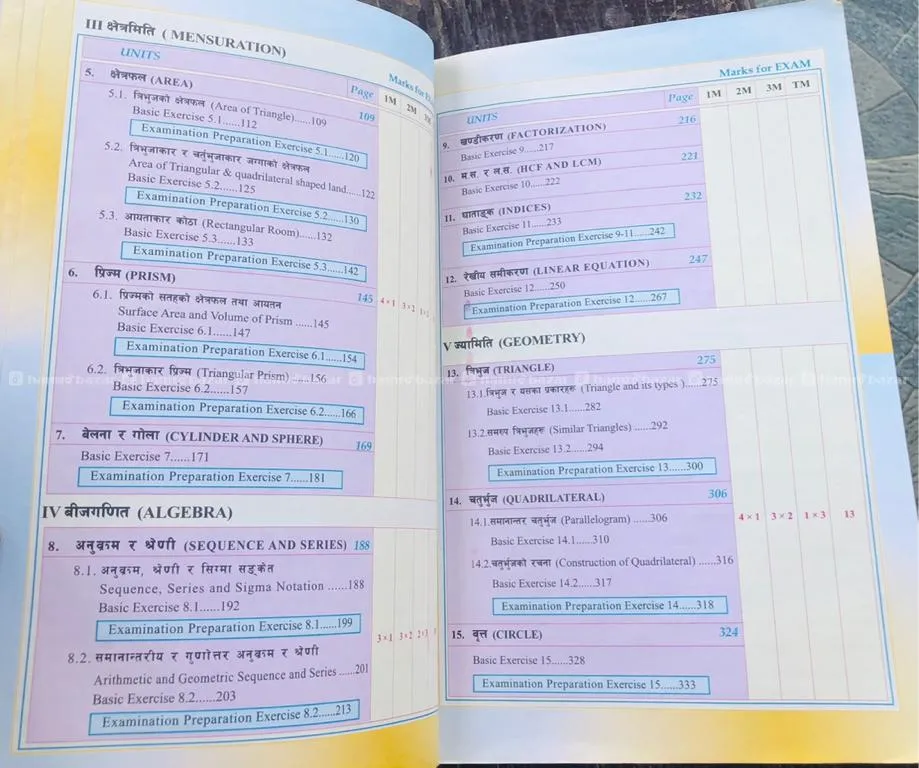 III क्षेत्रमिति ( MENSURATION)
UNITS
Marks for
Page 1M 2M
5. क्षेत्रफल (AREA) 109
5.1. त्रिभुजको क्षेत्रफल (Area of Triangle)......109
Basic Exercise 5.1......112
Examination Preparation Exercise 5.1......120
5.2. त्रिभुजाकार र चर्तुभुजाकार जग्गाको क्षेत्रफल
Area of Triangular & quadrilateral shaped land......122
Basic Exercise 5.2......125
Examination Preparation Exercise 5.2......130
5.3. आयताकार कोठा (Rectangular Room)......132
Basic Exercise 5.3......133
Examination Preparation Exercise 5.3......142
6. प्रिज्म (PRISM) 145
6.1. प्रिज्मको सतहको क्षेत्रफल तथा आयतन
Surface Area and Volume of Prism ......145
Basic Exercise 6.1......147
Examination Preparation Exercise 6.1......154
4 × 1 3 × 2
6.2. त्रिभुजाकार प्रिज्म (Triangular Prism) ......156
Basic Exercise 6.2......157
Examination Preparation Exercise 6.2......166
7. बेलना र गोला (CYLINDER AND SPHERE) 169
Basic Exercise 7......171
Examination Preparation Exercise 7......181
IV बीजगणित (ALGEBRA)
8. अनुक्रम र श्रेणी (SEQUENCE AND SERIES) 188
8.1. अनुक्रम, श्रेणी र सिग्मा सङ्केत
Sequence, Series and Sigma Notation ......188
Basic Exercise 8.1......192
Examination Preparation Exercise 8.1......199
3 × 1 3 × 2 2 × 3
8.2. समानान्तरीय र गुणोत्तर अनुक्रम र श्रेणी
Arithmetic and Geometric Sequence and Series ......201
Basic Exercise 8.2......203
Examination Preparation Exercise 8.2......213
Marks for EXAM
UNITS Page 1M 2M 3M TM
9. खण्डीकरण (FACTORIZATION) 216
Basic Exercise 9......217
10. म.स. र ल.स. (HCF AND LCM) 221
Basic Exercise 10......222
11. घाताङ्क (INDICES) 232
Basic Exercise 11......233
Examination Preparation Exercise 9-11......242
12. रेखीय समीकरण (LINEAR EQUATION) 247
Basic Exercise 12......250
Examination Preparation Exercise 12......267
V ज्यामिति (GEOMETRY)
13. त्रिभुज (TRIANGLE) 275
13.1.त्रिभुज र यसका प्रकारहरू (Triangle and its types )......275
Basic Exercise 13.1......282
13.2.समरुप त्रिभुजहरू (Similar Triangles) ......292
Basic Exercise 13.2......294
Examination Preparation Exercise 13......300
14. चतुर्भुज (QUADRILATERAL) 306
14.1.समानान्तर चतुर्भुज (Parallelogram) ......306
4 × 1 3 × 2 1 × 3 13
Basic Exercise 14.1......310
14.2.चतुर्भुजको रचना (Construction of Quadrilateral) ......316
Basic Exercise 14.2......317
Examination Preparation Exercise 14......318
15. वृत्त (CIRCLE) 324
Basic Exercise 15......328
Examination Preparation Exercise 15......333